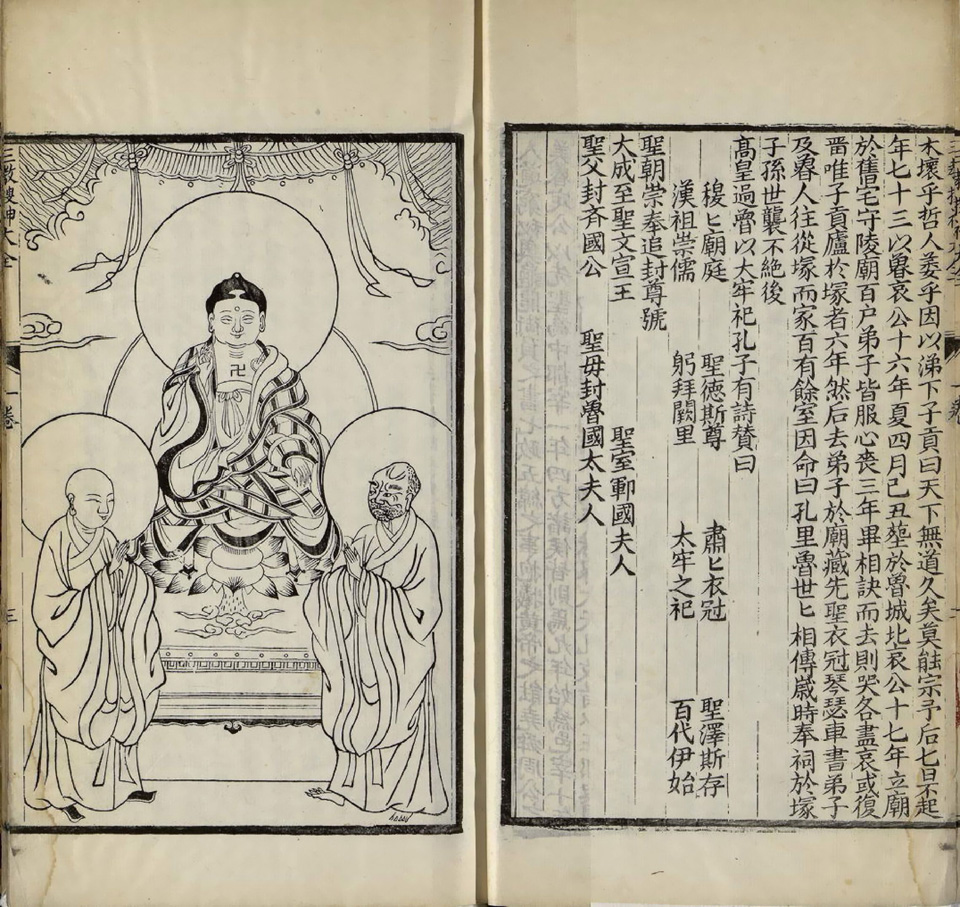 木壞乎哲人萎乎因以涕下子貢曰天下無道久矣莫能宗予后七日不起
年七十三以魯哀公十六年夏四月己丑塟於魯城北哀公十七年立廟
於舊宅守陵廟百户弟子皆服心喪三年畢相訣而去則哭各盡哀或復
畱唯子貢廬於塚者六年然后去弟子於廟藏先聖衣冠琴瑟車書弟子
及魯人往從塚而家百有餘室因命曰孔里魯世匕相傳歲時奉祠於塚
子孫世襲不絶後
高皇過魯以大牢祀孔子有詩贊曰
穆匕廟庭 聖德斯尊 肅匕衣冠 聖澤斯存
漢祖崇儒 躬拜闕里 太牢之祀 百代伊始
聖朝崇奉追封尊號
大成至聖文宣王 聖室鄆國夫人
聖父封齊國公 聖母封魯國太夫人
卍
三教搜神大全 一卷 三